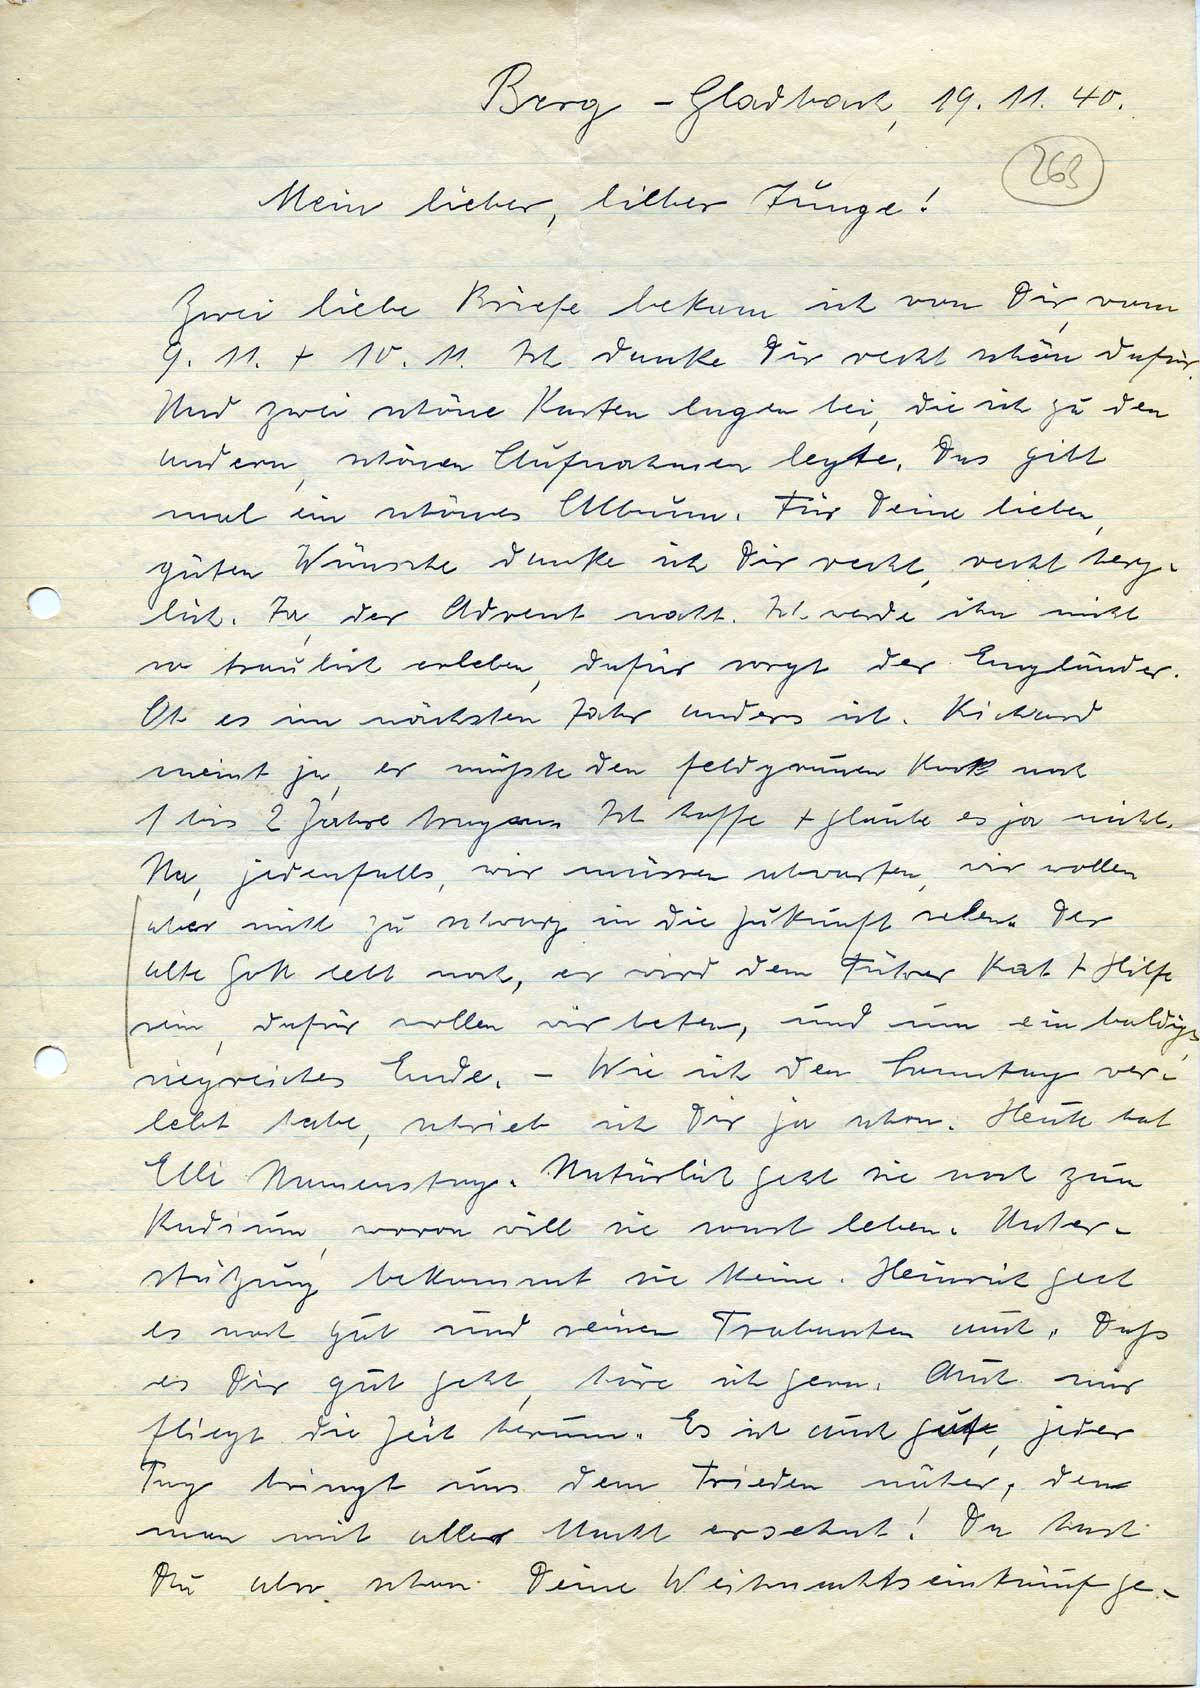 Berg-Gladbach, 19. 11. 40.
263
Mein lieber, lieber Junge!
Zwei liebe Briefe bekam ich von Dir, vom
9. 11. + 10. 11. Ich danke Dir recht schön dafür.
Und zwei schöne Karten lagen bei, die ich zu den
andern, schönen Aufnahmen legte. Das gibt
mal ein schönes Album. Für Deine lieben,
guten Wünsche danke ich Dir recht, recht herz-
lich. Ja, der Advent naht. Ich werde ihn nicht
so traulich erleben, dafür sorgt der Engländer.
Ob es im nächsten Jahr anders ist. Richard
meint ja, er müßte den feldgrauen Rock noch
1 bis 2 Jahre tragen. Ich hoffe + glaube es ja nicht.
Na, jedenfalls, wir müssen abwarten, wir wollen
aber nicht zu schwarz in die Zukunft sehen. Der
alte Gott lebt noch, er wird dem Führer Rat + Hilfe
sein, dafür wollen wir beten, und um ein baldiges,
siegreiches Ende. - Wie ich den Sonntag ver-
lebt habe, schrieb ich Dir ja schon. Heute hat
Elli Namenstag. Natürlich geht sie noch zum
Radium, wovon will sie sonst leben. Unter-
stützung bekommt sie keine. Heinrich geht
es noch gut und seinen Trabanten auch. Daß
es Dir gut geht, höre ich gern. Auch mir
fliegt die Zeit herum. Es ist auch gut, jeder
Tag bringt uns dem Frieden näher, den
man mit aller Macht ersehnt! Da hast
Du also schon Deine Weihnachtseinkäuf ge-